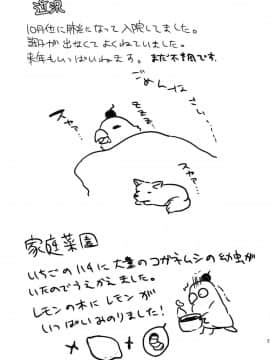 近況
10月位に肺炎になって入院してました。
調子が出なくてよくねていました。
来年もいっぱいねます。まだ本調です。
ごめんなさい……
スヤァ…
ZZZZ
スヤァ…
家庭菜園
いちごのハチに大量のコガネムシの幼虫が
いたのでうえかえました。
レモンの木にレモンが
いっぱいみのりました!